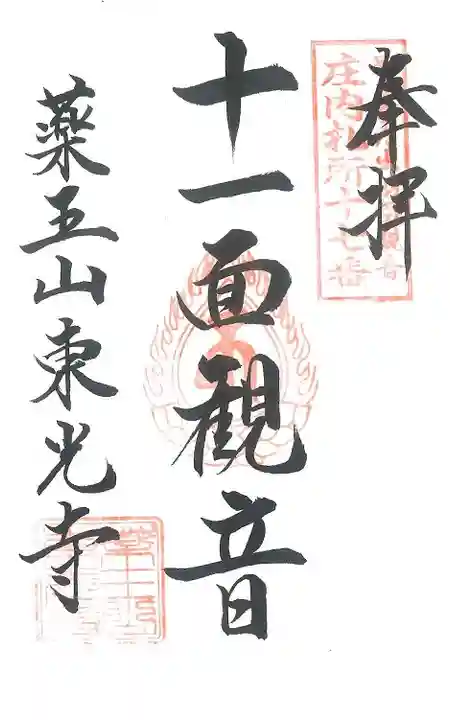 奉拝
庄内札所十七番
十一面観音
薬王山東光寺